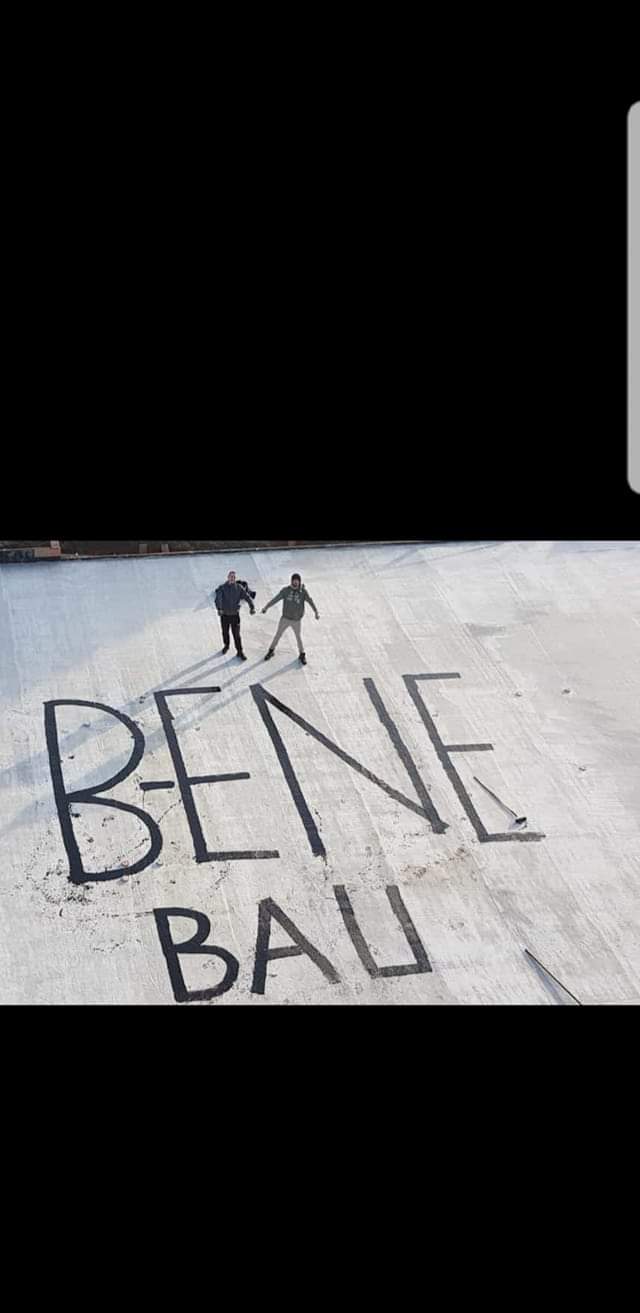 B-ENE
BAU